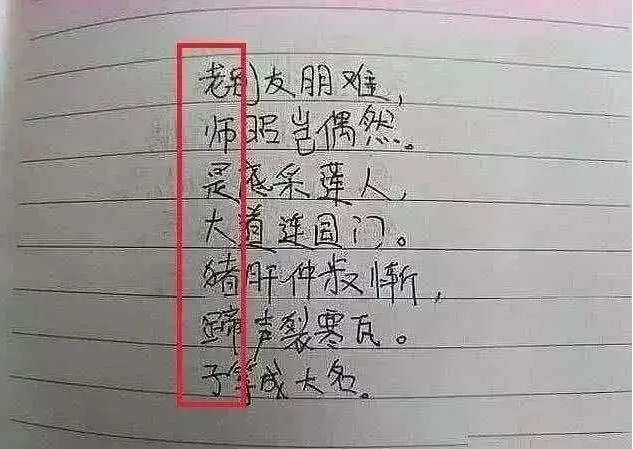 老别友朋难，
师昭岂偶然。
是感采莲人，
大道连国门。
猪肝仲叔惭，
蹄声裂寒瓦。
子等成大名。